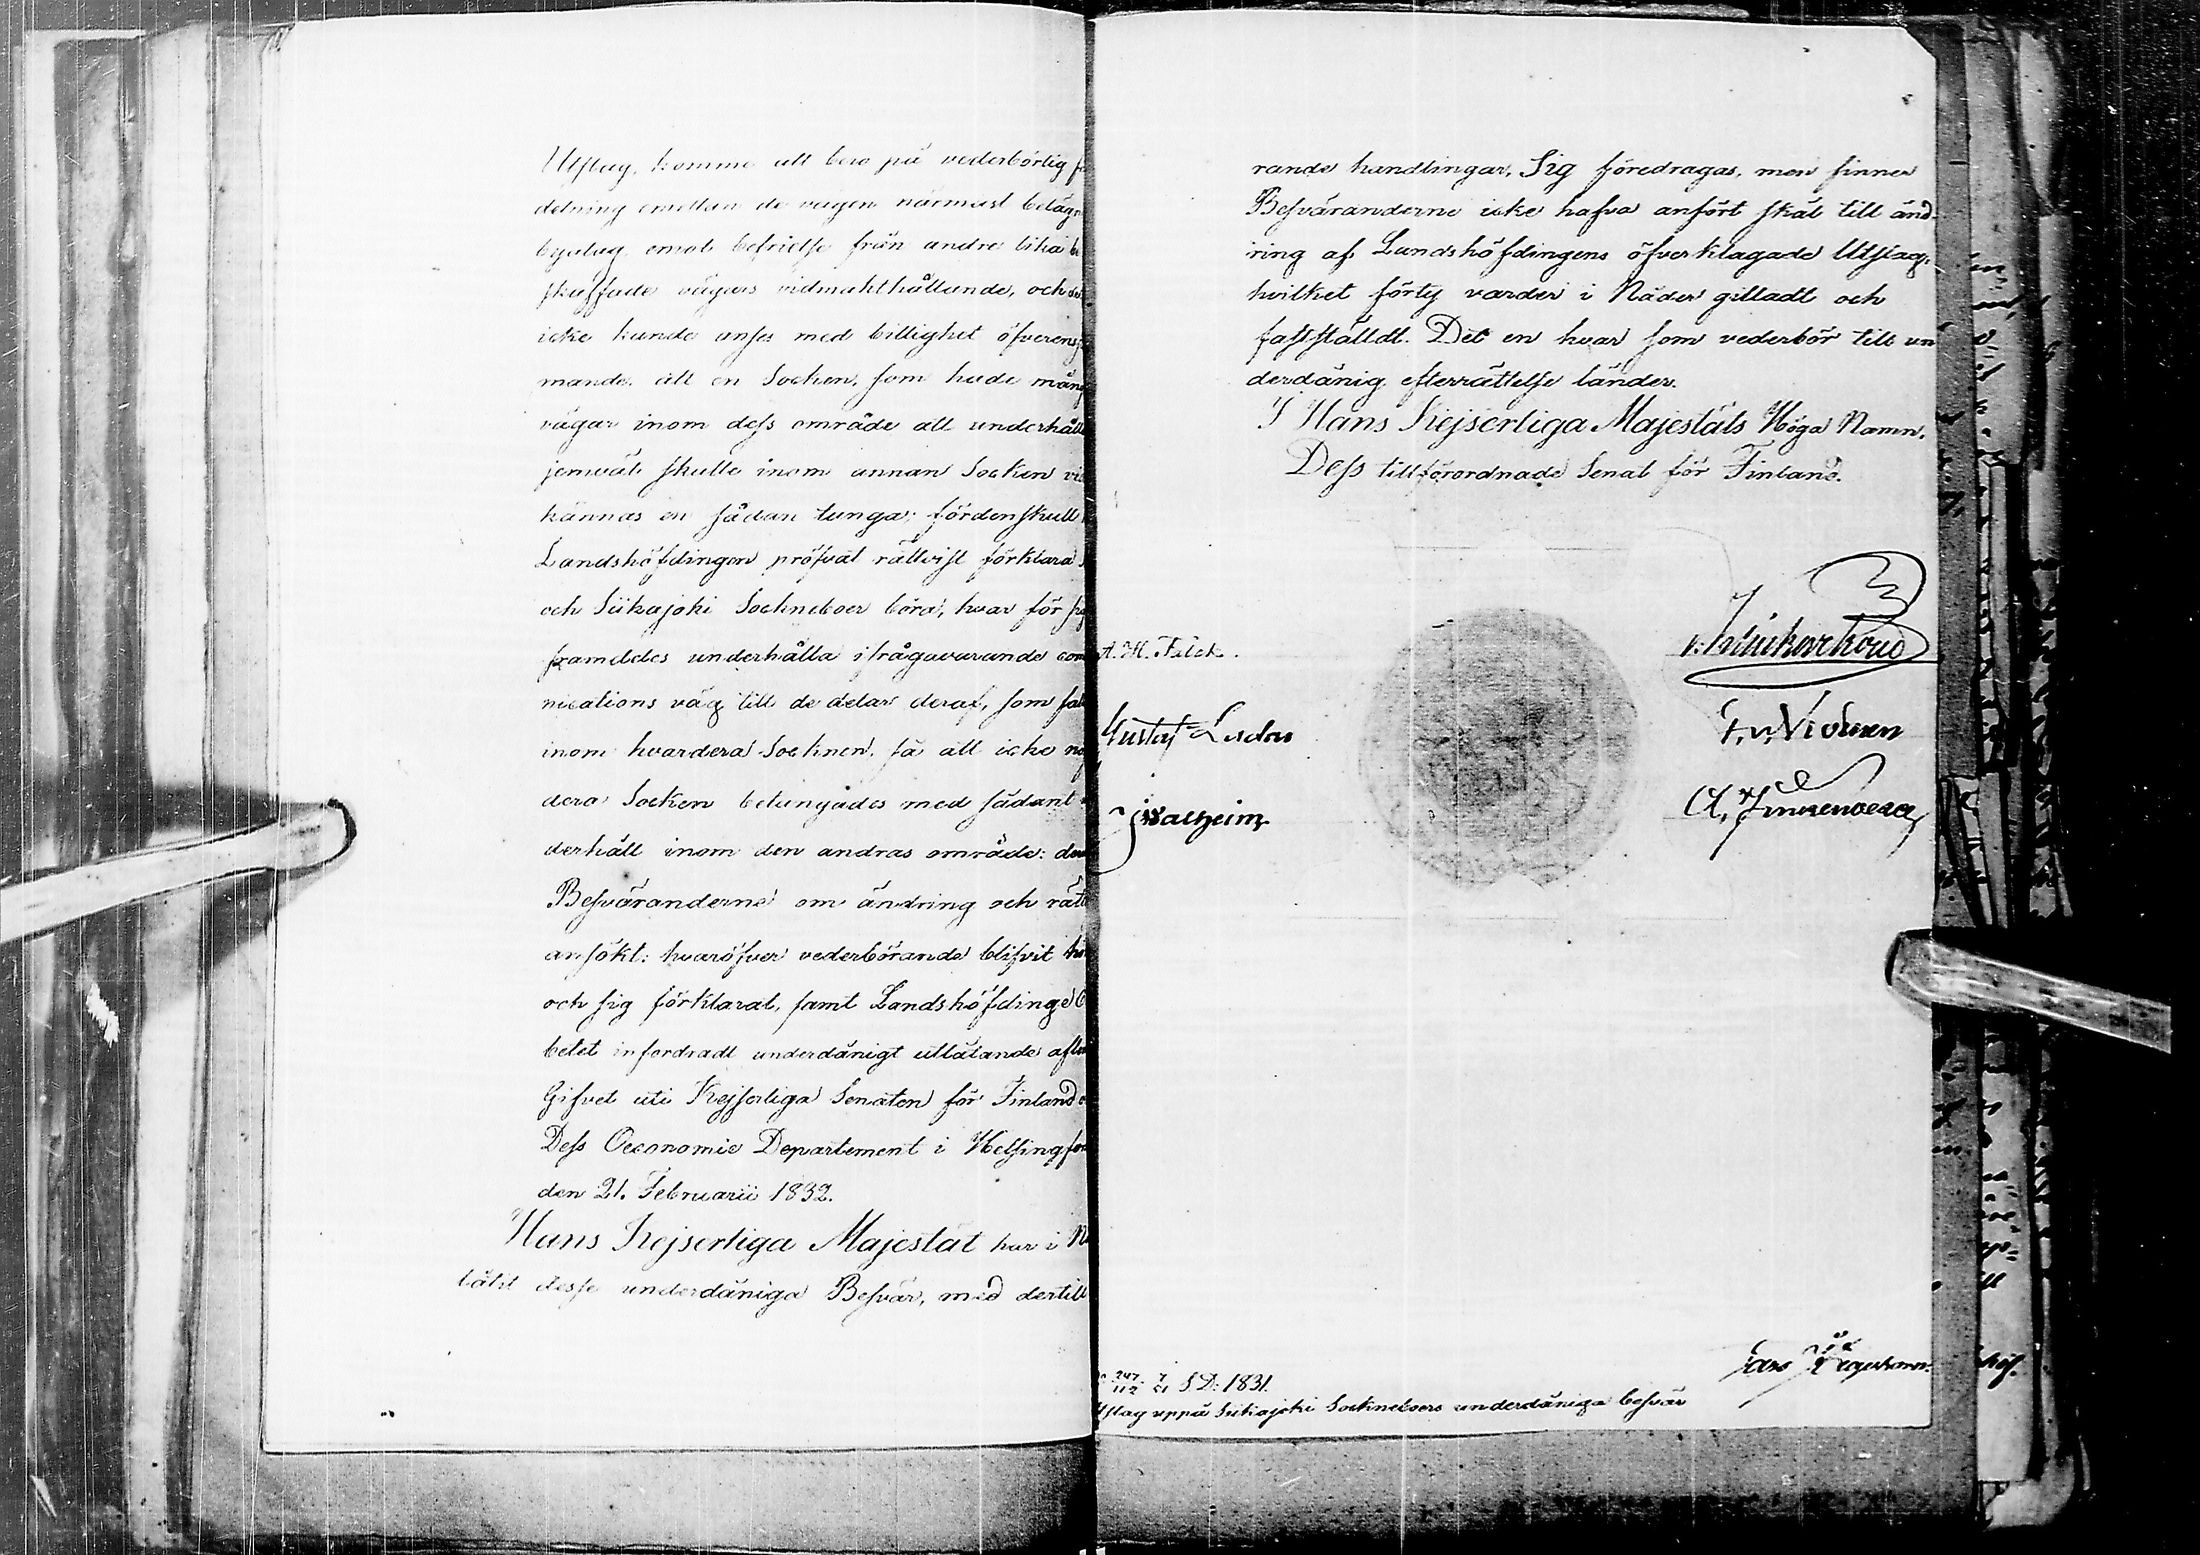 Utslag, komme att bero på vederbörlig fö
delning emellan de vägen närmast beläg
byalag emot befrielse från andre lika be
skaffade vägars vidmakthållande, och de
icke kunde anses med billighet öfverens
mande, att en Socken, som hade mång
vägar inom dess område att underhåll
jemväl skulle inom annan Socken vid
kännas en sådan tunga; fördenskull
Landshöfdingen pröfvat rättvist förklara
och Siikajoki Sockneboer böra, hvar för sig
framdeles underhålla ifrågavarande com
nications väg till de delar deraf, som fal
inom hvardera Socknen, så att icke nå
dera Socken betungades med sådant
derhåll inom den andras område: der
Besväranderne om ändring och rätt
ansökt: hvaröfver vederbörande blifvit hö
och sig förklarat, samt Landshöfdinge E
betet infordradt underdånigt utlåtande afle
Gifvet uti Kejserliga Senaten för Finland
Dess Oeconomie Departement i Helsingfor
den 21. Februarii 1832.
Hans Kejserliga Majestät har i N
låtit desse underdåniga Besvär, med dertill
rande handlingar, Sig föredragas, men finner
Besväranderne icke hafva anfört skäl till änd
ring af Landshöfdingens öfverklagade Utslag,
hvilket förty varder i Nåder gilladt och
fastställdt. Det en hvar som vederbör till un
derdånig efterrättelse länder.
I Hans Kejserliga Majestäts Höga Namn,
Dess tillförordnade Senat för Finland.
A. H. Falck.
Gustaf
J Walheim
1831.
slag uppå Siikajoki Sockneboers underdåniga besvär